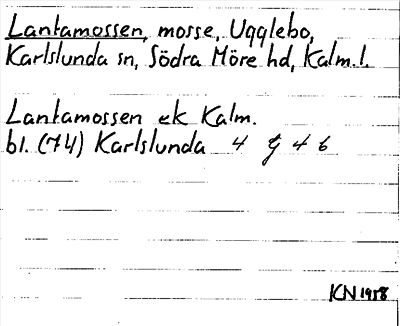 Lantamossen, mosse, Ugglebo,
Karlslunda sn, Södra Möre hd, Kalm.l.
Lantamossen ek Kalm.
bl. (74) Karlslunda 4 g 4 b
KN 1958